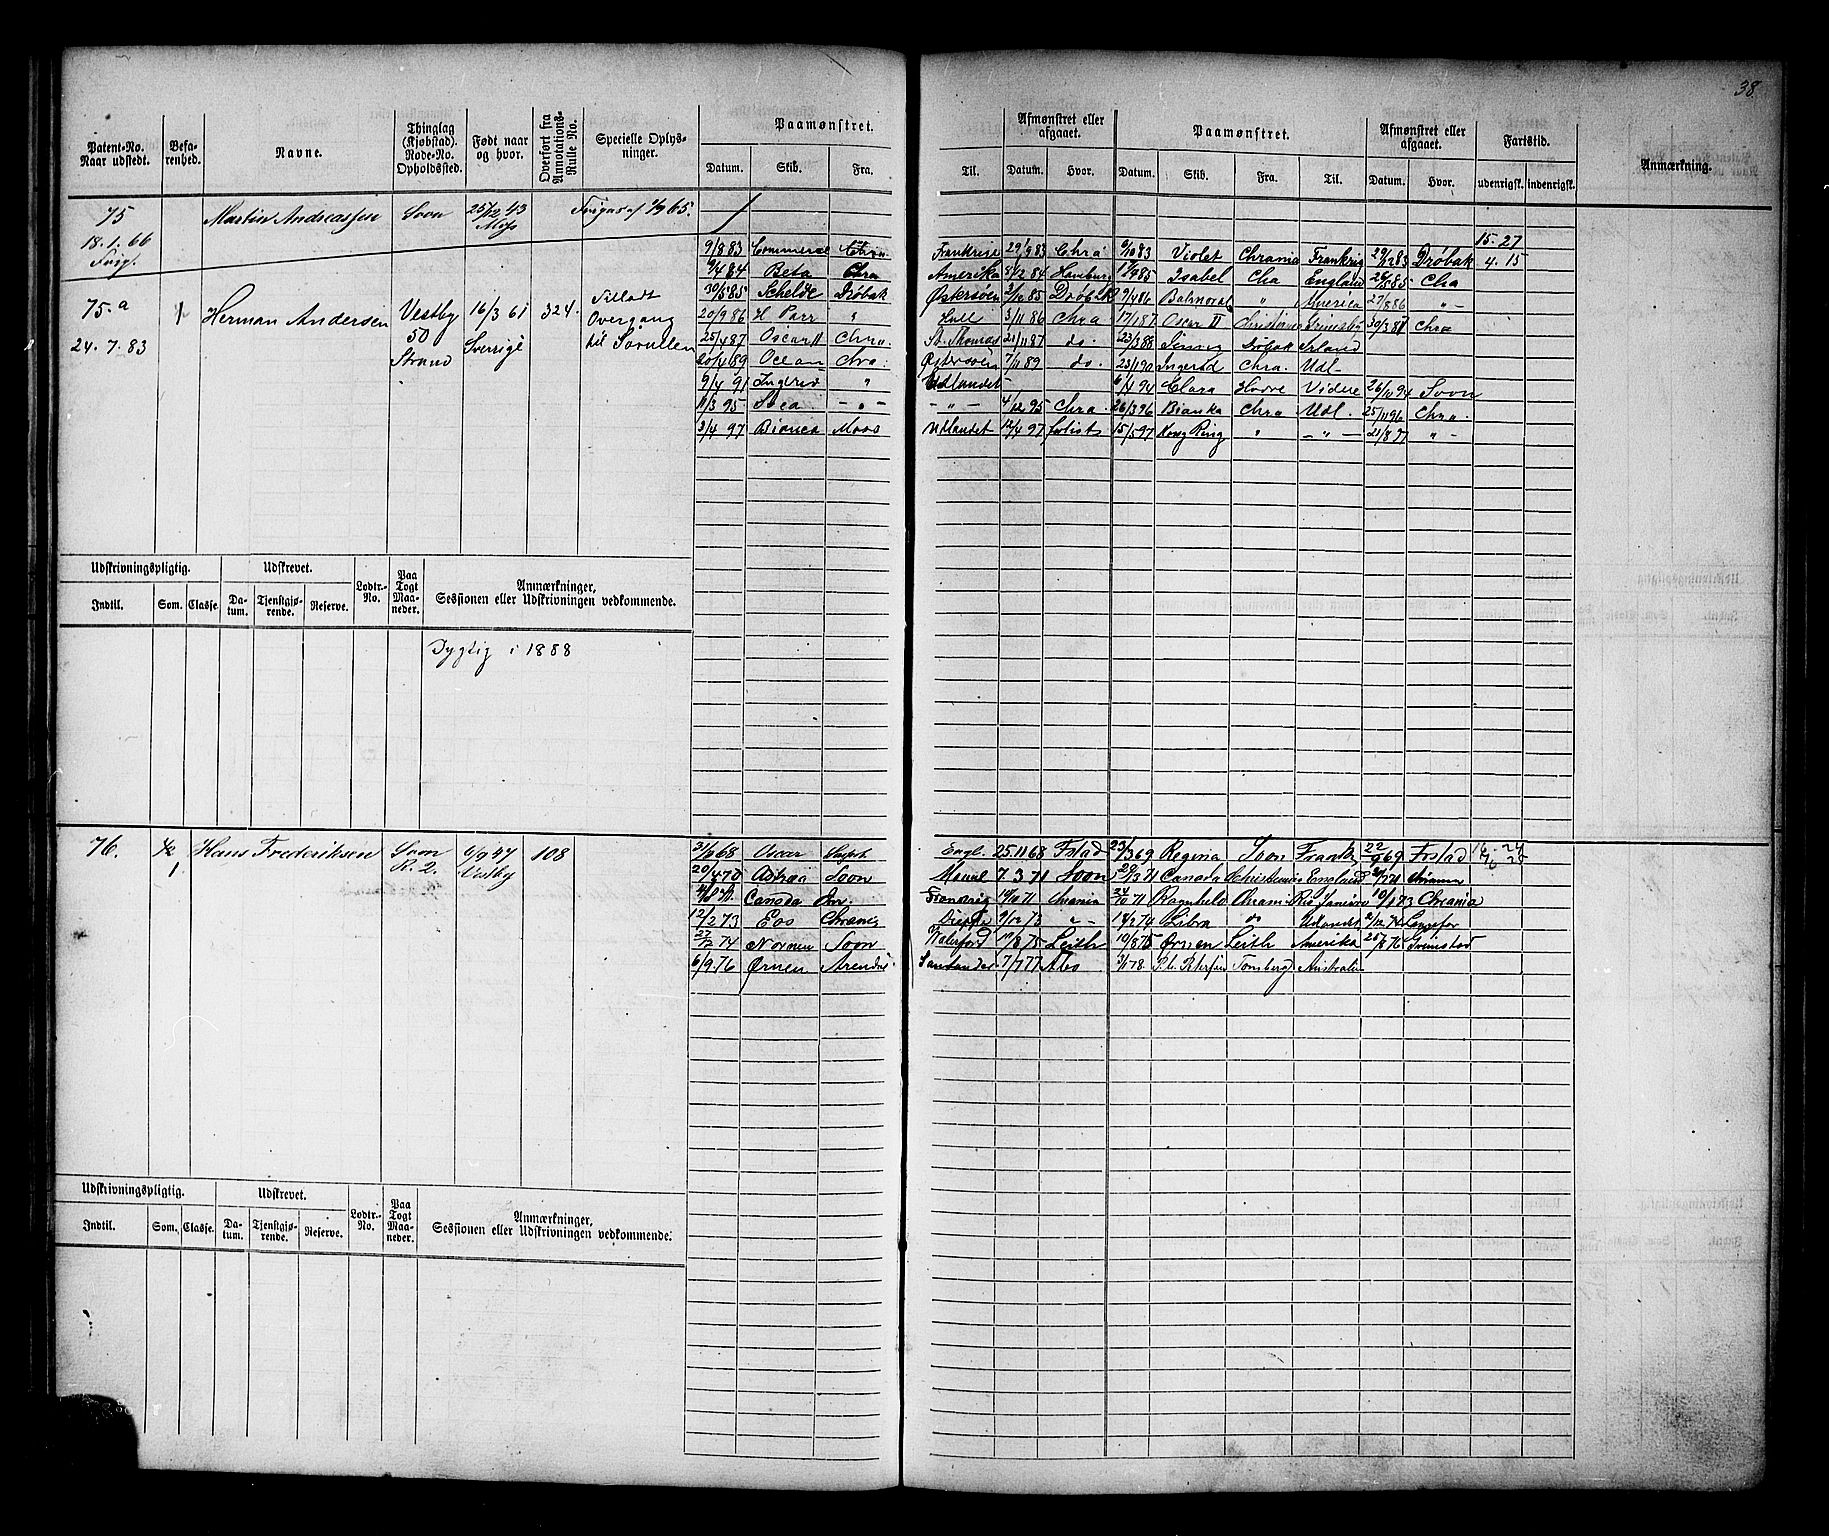 38.
Patent-No. Naar udstedt. | Befarenhed. | Navne. | Thinglag (Kjøbstad). Rode-No. Opholdssted. | Født naar og hvor. | Overført fra Annotations-Rulle No. | Specielle Oplysninger. | Paamønstret. | Afmønstret eller afgaaet. | Paamønstret. | Afmønstret eller afgaaet. | Fartstid. | Anmærkning.
Datum. | Skib. | Fra. | Til. | Datum. | Hvor. | Datum. | Skib. | Fra. | Til. | Datum. | Hvor. | udenrigsk. | indenrigsk.
75 | Martin Andreassen | Soon | 25/12 43 Moss
18.1.66
15.27
9/8 83 | Commerce | Chra | Frankrige | 29/9 83 | Chra | 6/10 83 | Violet | Chrania | Frankrig | 29/12 83 | Drøbak | 4.15
9/4 84 | Beta | Chra | Amerika | 5/12 84 | Hamburg | Isabel | Cha | England | 26/5 85 | Cha
75.a | Herman Andersen | Vestby 50 Strand | 16/3 61 Sverrige | 324. | Tilladt Overgang til Sørullen
24.7.83
30/5 85 | Schelde | Drøbak | Østersøen | 2/10 85 | Drøbak | 9/4 86 | Balmoral | " | Amerika | 27/8 86 | - " -
20/9 86 | H Parr | " | Hull | 3/11 86 | Chra | 17/1 87 | Oscar II | Christiania | Grimsby | 30/3 87 | Chra
25/4 87 | Oscar II | Chra. | St. Thomas | 21/11 87 | do. | 23/3 88 | Drøbak | Irland
20/4 89 | Ocean | Chra. | Østersøen | 7/11 89 | do. | 23/1 90 | Ingerid | Chra. | Udl.
9/4 91 | Ingerid | " | Udlandet | 6/4 94 | Clara | Hvidre | 26/10 94 | Soon
11/3 95 | - " - | - " - | 4/12 95 | Chra. | 26/3 96 | Bianka | Chra | Udl. | 25/11 96 | Chra.
3/4 97 | Bianca | Moss | Udlandet | 12/4 97 | forlist | 15/5 97 | Kong Ring | " | - " - | 21/8 97 | " -
Udskrivningspligtig. | Udskrevet. | Lodtr.-No. | Paa Togt Maaneder. | Anmærkninger, Sessionen eller Udskrivningen vedkommende.
Indtil. | Som. | Classe. | Datum. | Tjenstgjørende. | Reserve.
Dygtig i 1888
76. | 1 | Hans Frederiksen | Soon R. 2. | 6/9 47 Vestby | 108
21/9 68 | Oscar | Engl. | 25.11 68 | Fstad | 23/3 69 | Regina | Soon | Frankr | 22/9 69 | Frstad
20/4 70 | Astræa | Soon | 7.3.71 | Soon | 20/3 71 | Canada | Christiania | England
Canada | Frankrig | 10/10 71 | Chrania | 24/10 71 | Ragnhild | Chrania | Rio Janeiro | 10/1 73 | Chrania
12/2 73 | Eos | Chrania | Dieppe | 9/12 73 | " - | 14/2 74 | Libra | do | Udlandet
22/12 74 | Nornen | Soon | Waterford | 17/8 75 | Leith | 19/8 75 | Ørnen | Leith | Amerika | 20/8 76 | Grimstad
6/9 76 | Ørnen | Arendal | Santander | 7/7 77 | Åbo | 3/1 78 | Tønsberg | Australien
Udskrivningspligtig. | Udskrevet. | Lodtr.-No. | Paa Togt Maaneder. | Anmærkninger, Sessionen eller Udskrivningen vedkommende.
Indtil. | Som. | Classe. | Datum. | Tjenstgjørende. | Reserve.